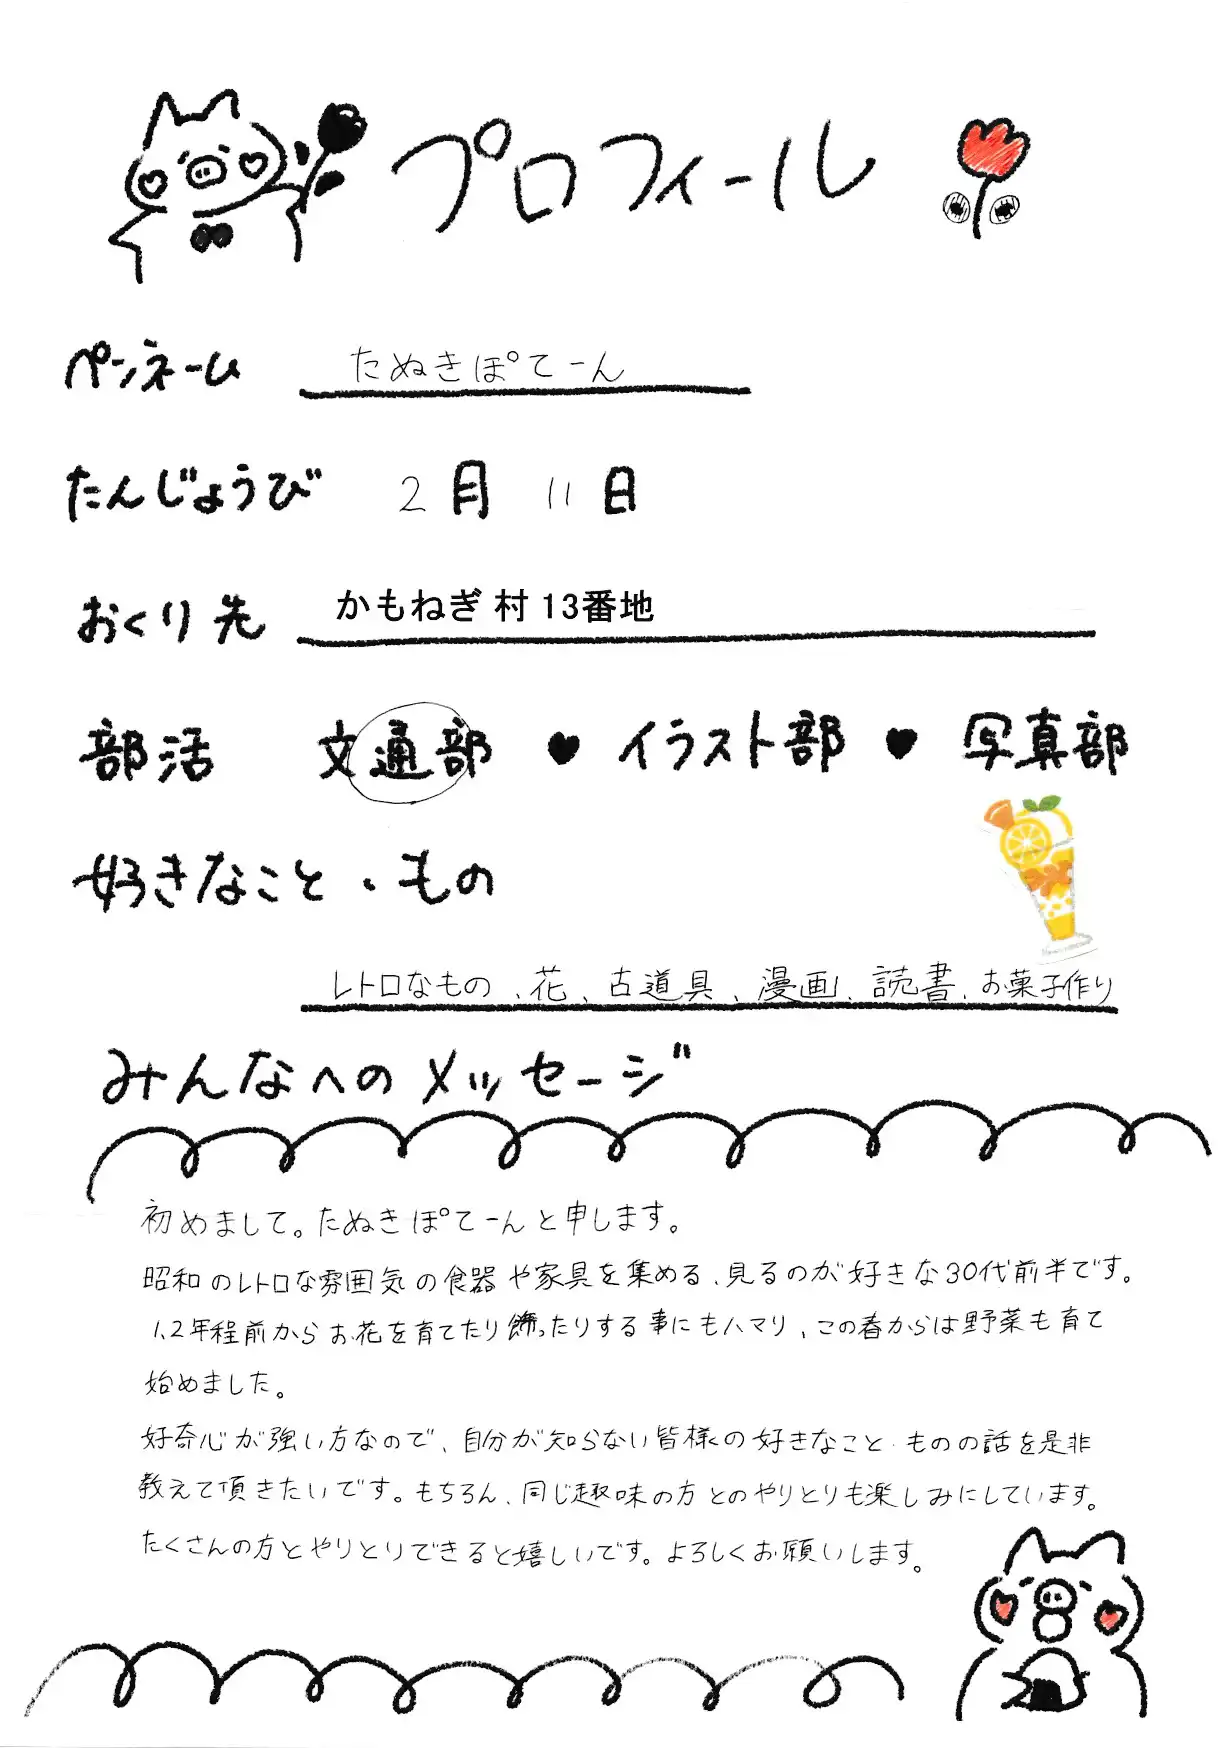 プロフィール
ペンネーム たぬきぽてーん
たんじょうび 2月 11日
おくり先 かもねぎ村 13番地
部活 文通部 ♥ イラスト部 ♥ 写真部
好きなこと・もの
レトロなもの、花、古道具、漫画、読書、お菓子作り
みんなへのメッセージ
初めまして。たぬきぽてーんと申します。
昭和のレトロな雰囲気の食器や家具を集める、見るのが好きな30代前半です。
1、2年程前からお花を育てたり飾ったりする事にもハマり、この春からは野菜も育て
始めました。
好奇心が強い方なので、自分が知らない皆様の好きなこと・ものの話を是非
教えて頂きたいです。もちろん、同じ趣味の方とのやりとりも楽しみにしています。
たくさんの方とやりとりできると嬉しいです。よろしくお願いします。